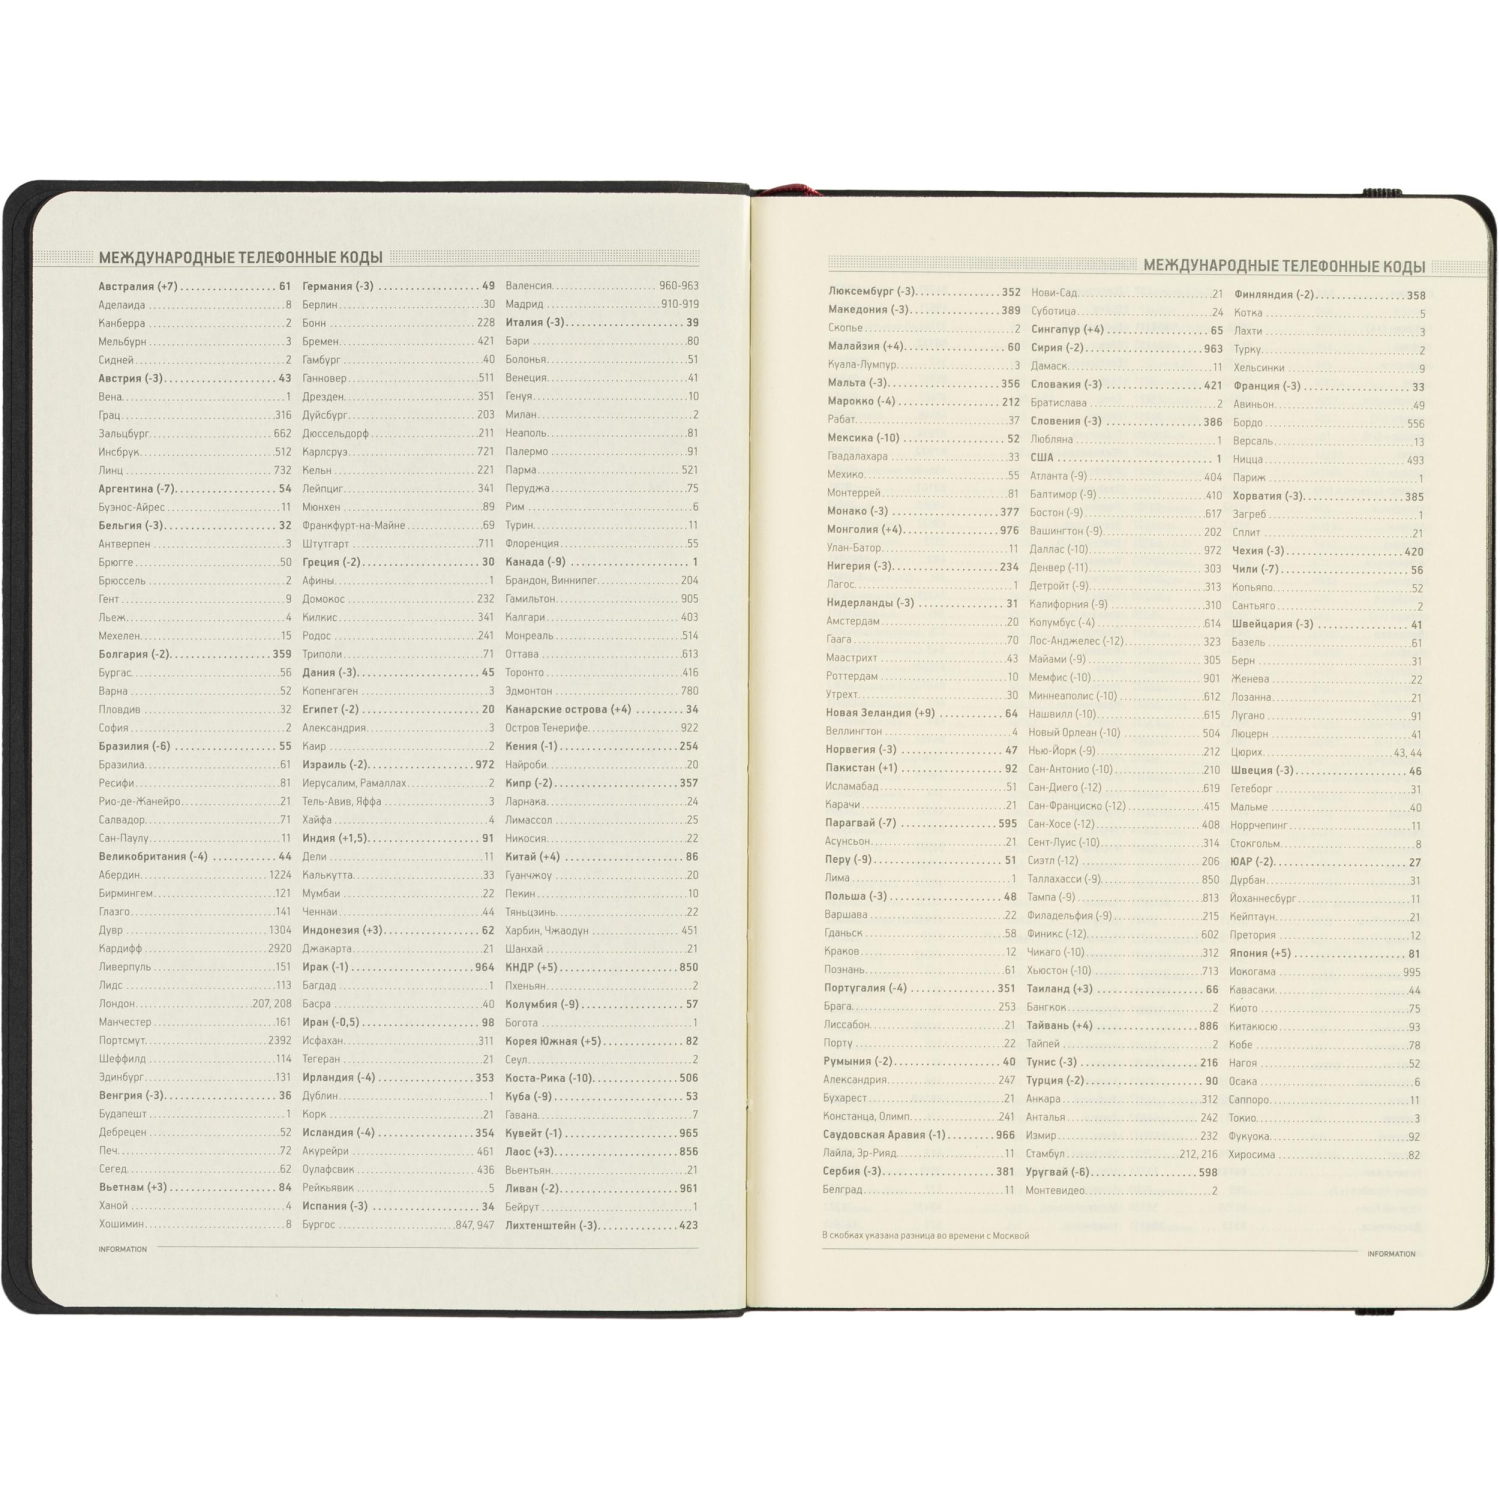 МЕЖДУНАРОДНЫЕ ТЕЛЕФОННЫЕ КОДЫ
Австралия (+7) 61
Аделаида 8
Канберра 2
Мельбурн 3
Сидней 2
Австрия (-3) 43
Вена 1
Грац 316
Зальцбург 662
Инсбрук 512
Линц 732
Аргентина (-7) 54
Буэнос-Айрес 11
Бельгия (-3) 32
Антверпен 3
Брюгге 50
Брюссель 2
Гент 9
Льеж 4
Мехелен 15
Болгария (-2) 359
Бургас 56
Варна 52
Пловдив 32
София 2
Бразилия (-6) 55
Бразилиа 61
Ресифи 81
Рио-де-Жанейро 21
Салвадор 71
Сан-Паулу 11
Великобритания (-4) 44
Абердин 1224
Бирмингем 121
Глазго 141
Дувр 1304
Кардифф 2920
Ливерпуль 151
Лидс 113
Лондон 207, 208
Манчестер 161
Портсмут 2392
Шеффилд 114
Эдинбург 131
Венгрия (-3) 36
Будапешт 1
Дебрецен 52
Печ 72
Сегед 62
Вьетнам (+3) 84
Ханой 4
Хошимин 8
Германия (-3) 49
Берлин 30
Бонн 228
Бремен 421
Гамбург 40
Ганновер 511
Дрезден 351
Дуйсбург 203
Дюссельдорф 211
Карлсруэ 721
Кельн 221
Лейпциг 341
Мюнхен 89
Франкфурт-на-Майне 69
Штутгарт 711
Греция (-2) 30
Афины 1
Домокос 232
Килкис 341
Родос 241
Триполи 71
Дания (-3) 45
Копенгаген 3
Египет (-2) 20
Александрия 3
Каир 2
Израиль (-2) 972
Иерусалим, Рамаллах 2
Тель-Авив, Яффа 3
Хайфа 4
Индия (+1,5) 91
Дели 11
Калькутта 33
Мумбаи 22
Ченнаи 44
Индонезия (+3) 62
Джакарта 21
Ирак (-1) 964
Багдад 1
Басра 40
Иран (-0,5) 98
Исфахан 311
Тегеран 21
Ирландия (-4) 353
Дублин 1
Корк 21
Исландия (-4) 354
Акурейри 461
Оулафсвик 436
Рейкьявик 5
Испания (-3) 34
Бургос 847, 947
Валенсия 960-963
Мадрид 910-919
Италия (-3) 39
Бари 80
Болонья 51
Венеция 41
Генуя 10
Милан 2
Неаполь 81
Палермо 91
Парма 521
Перуджа 75
Рим 6
Турин 11
Флоренция 55
Канада (-9) 1
Брандон, Виннипег 204
Гамильтон 905
Калгари 403
Монреаль 514
Оттава 613
Торонто 416
Эдмонтон 780
Канарские острова (+4) 34
Остров Тенерифе 922
Кения (-1) 254
Найроби 20
Кипр (-2) 357
Ларнака 24
Лимассол 25
Никосия 22
Китай (+4) 86
Гуанчжоу 20
Пекин 10
Тяньцзинь 22
Харбин, Чжаодун 451
Шанхай 21
КНДР (+5) 850
Пхеньян 2
Колумбия (-9) 57
Богота 1
Корея Южная (+5) 82
Сеул 2
Коста-Рика (-10) 506
Куба (-9) 53
Гавана 7
Кувейт (-1) 965
Лаос (+3) 856
Вьентьян 21
Ливан (-2) 961
Бейрут 1
Лихтенштейн (-3) 423
INFORMATION
МЕЖДУНАРОДНЫЕ ТЕЛЕФОННЫЕ КОДЫ
Люксембург (-3) 352
Македония (-3) 389
Скопье 2
Малайзия (+4) 60
Куала-Лумпур 3
Мальта (-3) 356
Марокко (-4) 212
Рабат 37
Мексика (-10) 52
Гвадалахара 33
Мехико 55
Монтеррей 81
Монако (-3) 377
Монголия (+4) 976
Улан-Батор 11
Нигерия (-3) 234
Лагос 1
Нидерланды (-3) 31
Амстердам 20
Гаага 70
Маастрихт 43
Роттердам 10
Утрехт 30
Новая Зеландия (+9) 64
Веллингтон 4
Норвегия (-3) 47
Пакистан (+1) 92
Исламабад 51
Карачи 21
Парагвай (-7) 595
Асунсьон 21
Перу (-9) 51
Лима 1
Польша (-3) 48
Варшава 22
Гданьск 58
Краков 12
Познань 61
Португалия (-4) 351
Брага 253
Лиссабон 21
Порту 22
Румыния (-2) 40
Александрия 247
Бухарест 21
Констанца, Олимп 241
Саудовская Аравия (-1) 966
Лайла, Эр-Рияд 11
Сербия (-3) 381
Белград 11
Нови-Сад 21
Суботица 24
Сингапур (+4) 65
Сирия (-2) 963
Дамаск 11
Словакия (-3) 421
Братислава 2
Словения (-3) 386
Любляна 1
США 1
Атланта (-9) 404
Балтимор (-9) 410
Бостон (-9) 617
Вашингтон (-9) 202
Даллас (-10) 972
Денвер (-11) 303
Детройт (-9) 313
Калифорния (-9) 310
Колумбус (-4) 614
Лос-Анджелес (-12) 323
Майами (-9) 305
Мемфис (-10) 901
Миннеаполис (-10) 612
Нашвилл (-10) 615
Новый Орлеан (-10) 504
Нью-Йорк (-9) 212
Сан-Антонио (-10) 210
Сан-Диего (-12) 619
Сан-Франциско (-12) 415
Сан-Хосе (-12) 408
Сент-Луис (-10) 314
Сиэтл (-12) 206
Таллахасси (-9) 850
Тампа (-9) 813
Филадельфия (-9) 215
Финикс (-12) 602
Чикаго (-10) 312
Хьюстон (-10) 713
Таиланд (+3) 66
Бангкок 2
Тайвань (+4) 886
Тайпей 2
Тунис (-3) 216
Турция (-2) 90
Анкара 312
Анталья 242
Измир 232
Стамбул 212, 216
Уругвай (-6) 598
Монтевидео 2
Финляндия (-2) 358
Котка 5
Лахти 3
Турку 2
Хельсинки 9
Франция (-3) 33
Авиньон 49
Бордо 556
Версаль 13
Ницца 493
Париж 1
Хорватия (-3) 385
Загреб 1
Сплит 21
Чехия (-3) 420
Чили (-7) 56
Копьяпо 52
Сантьяго 2
Швейцария (-3) 41
Базель 61
Берн 31
Женева 22
Лозанна 21
Лугано 91
Люцерн 41
Цюрих 43, 44
Швеция (-3) 46
Гетеборг 31
Мальме 40
Норрчепинг 11
Стокгольм 8
ЮАР (-2) 27
Дурбан 31
Йоханнесбург 11
Кейптаун 21
Претория 12
Япония (+5) 81
Иокогама 995
Кавасаки 44
Киото 75
Китакюсю 93
Кобе 78
Нагоя 52
Осака 6
Саппоро 11
Токио 3
Фукуока 92
Хиросима 82
В скобках указана разница во времени с Москвой
INFORMATION